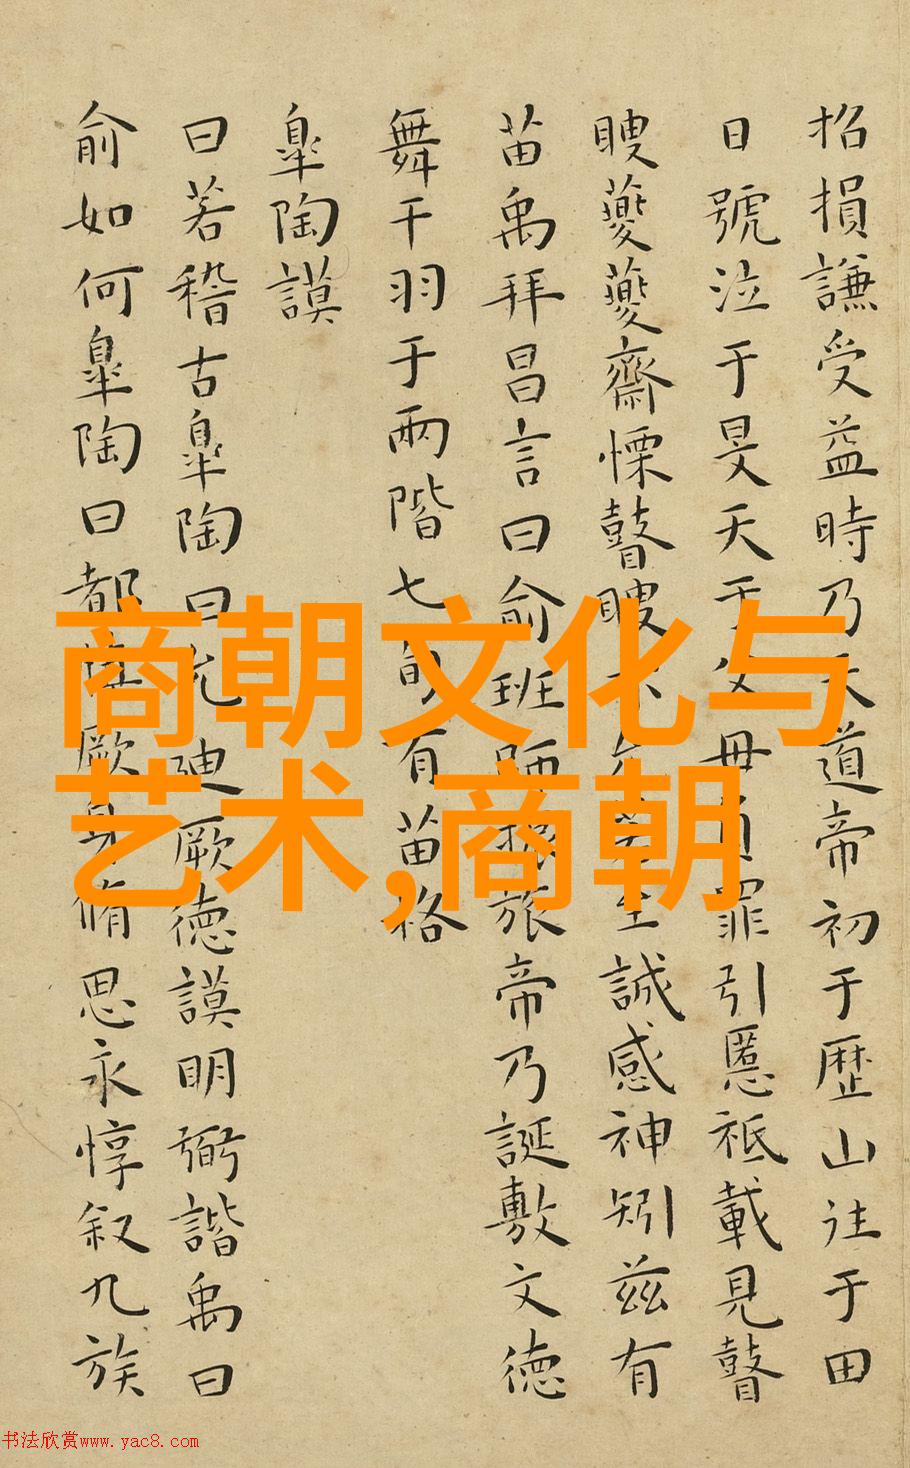 招損謙受益時乃天道帝初于歴山往于田
日號泣于旻天于父母負罪引慝祗載見瞽
瞍夔夔齋慄瞽瞍至諴感神矧兹有
苗禹拜昌言曰俞班師振旅帝乃誕敷文德
舞干羽于兩階七旬有苗格
皋陶謨
曰若稽古皋陶曰允迪厥德謨明弼諧禹曰
俞如何皋陶曰都慎厥身脩思永惇叙九族
商朝文化与
艺术,商朝
书法欣赏www.yac8.com